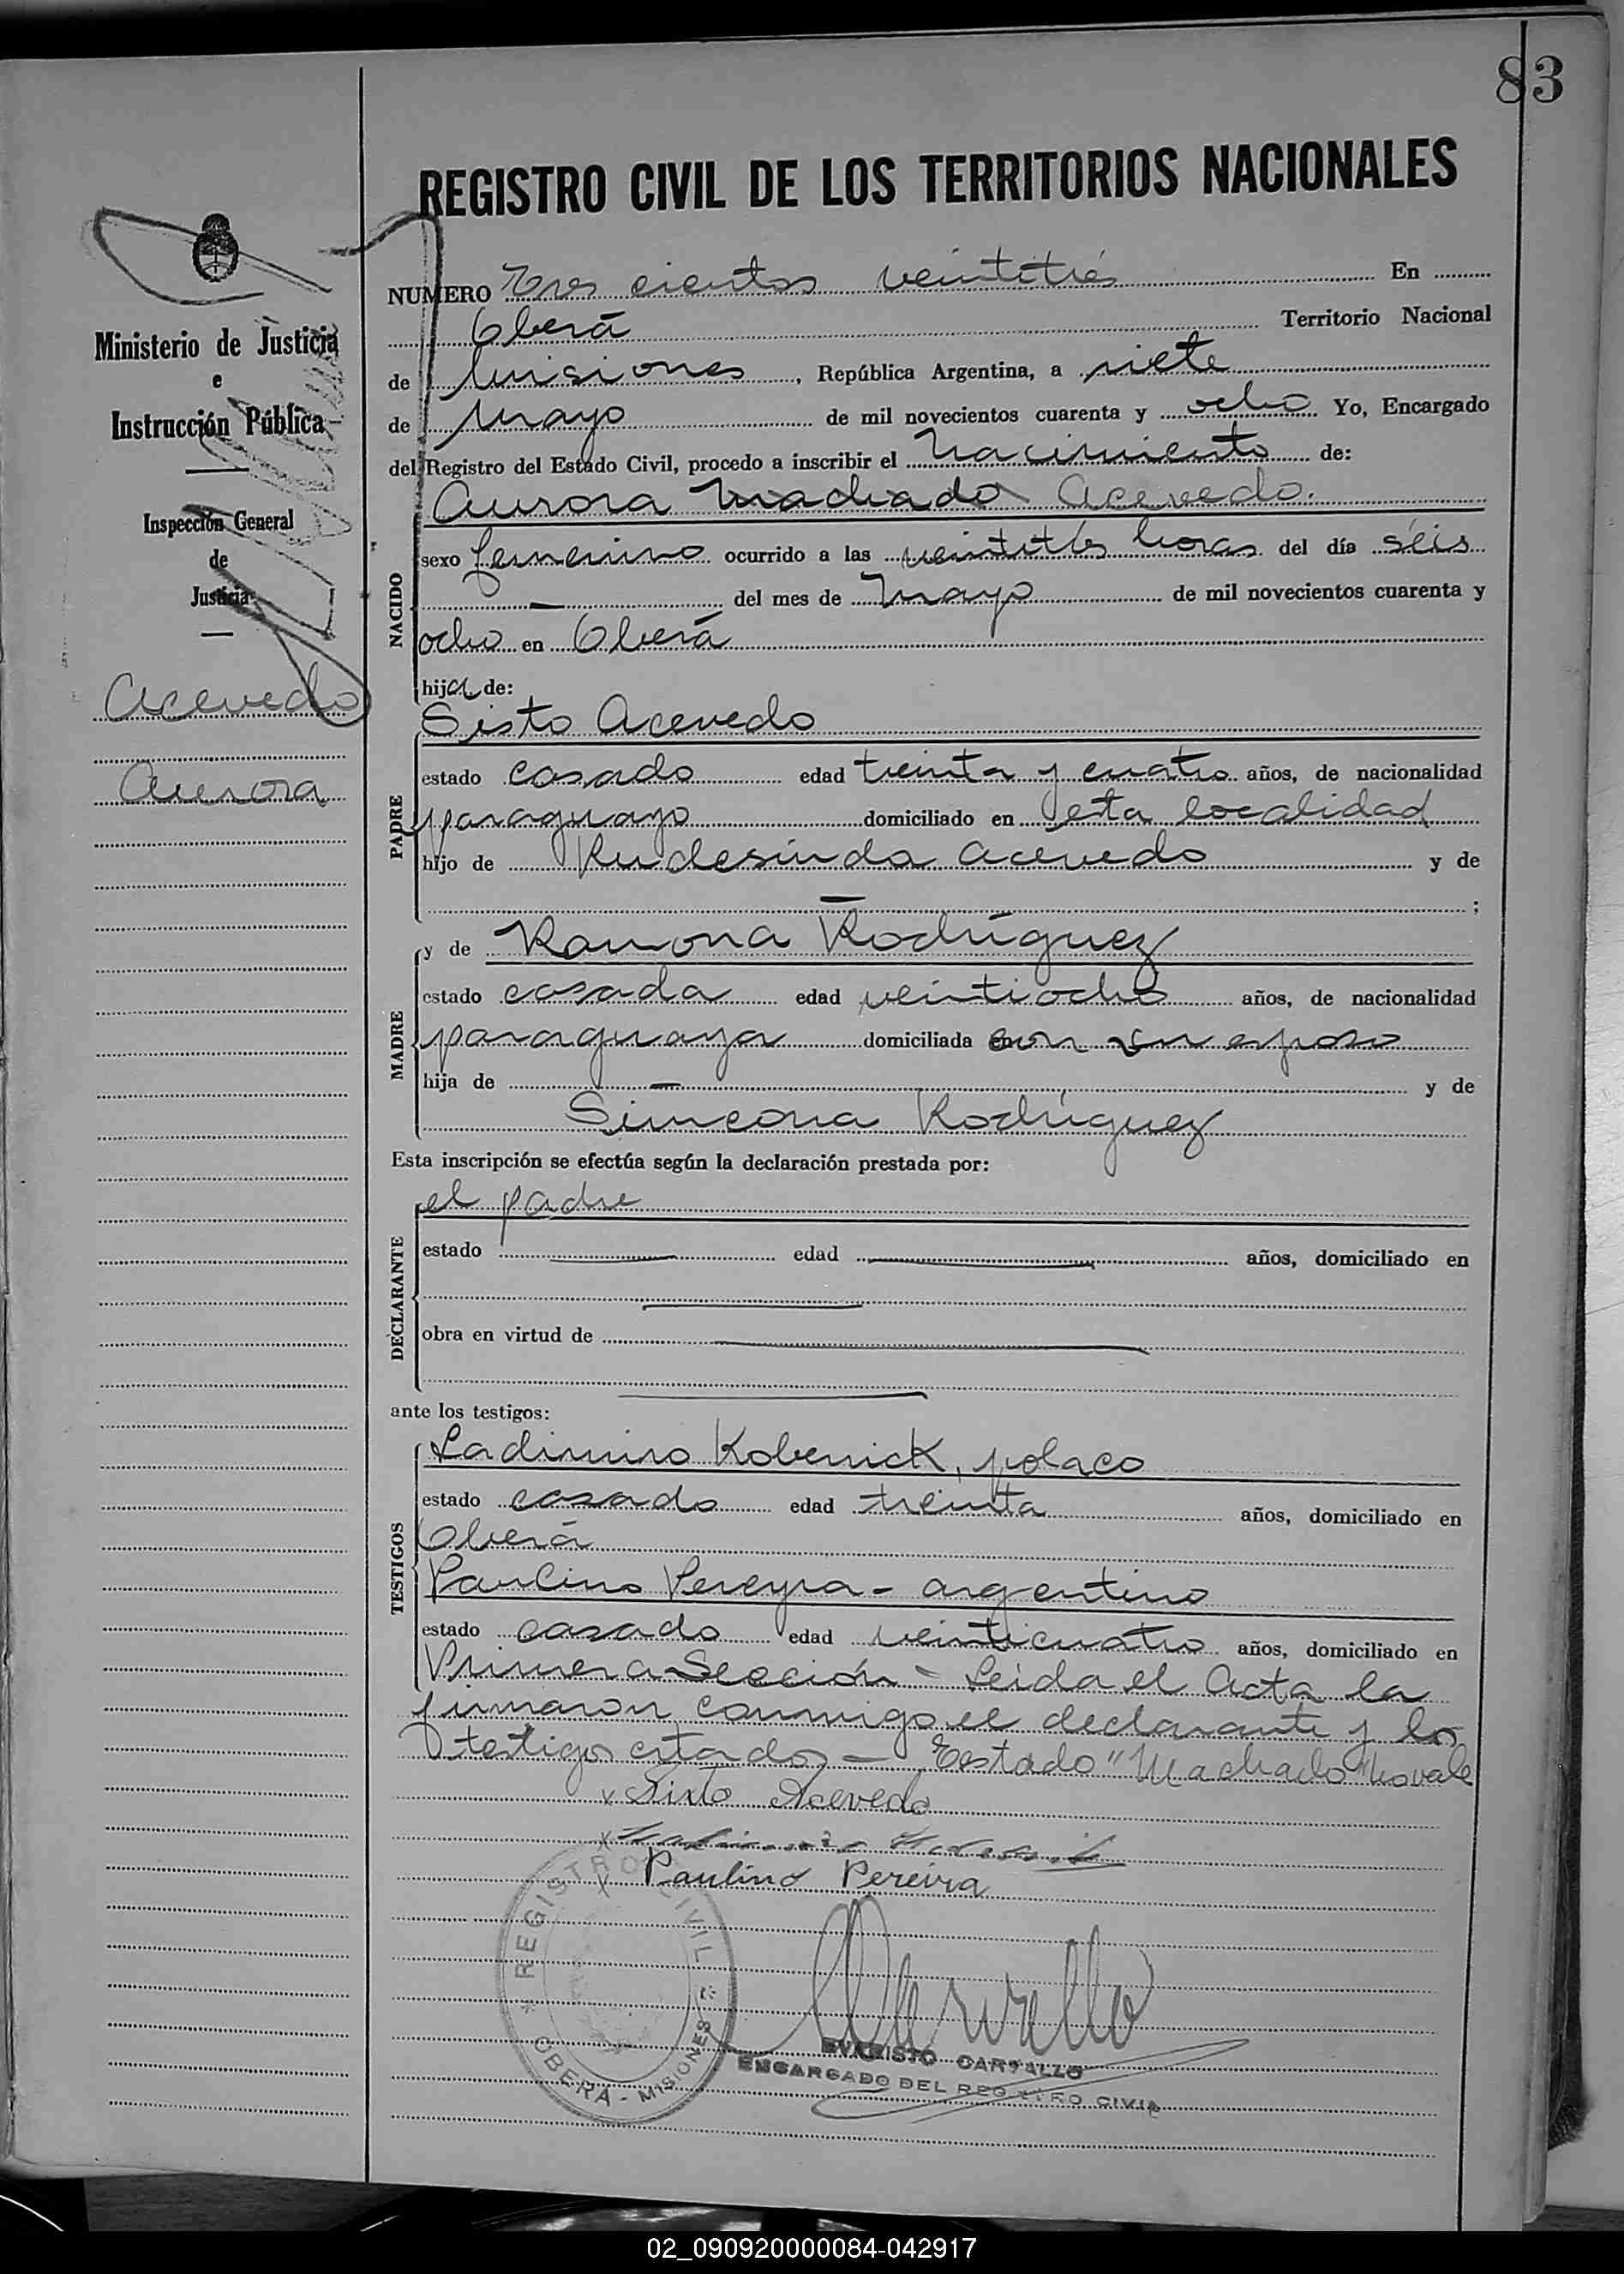 83
REGISTRO CIVIL DE LOS TERRITORIOS NACIONALES
Ministerio de Justicia
e
Instrucción Pública
Inspección General
de
Justicia
Acevedo
Aurora
NUMERO Tres cientos veintitrés En
Oberá Territorio Nacional
de Misiones, República Argentina, a siete
de Mayo de mil novecientos cuarenta y ocho Yo, Encargado
del Registro del Estado Civil, procedo a inscribir el Nacimiento de:
Aurora Machado Acevedo.
NACIDO
sexo femenino ocurrido a las veintitrés horas del día séis
— del mes de Mayo de mil novecientos cuarenta y
ocho en Oberá
hija de:
Sisto Acevedo
PADRE
estado casado edad treinta y cuatro años, de nacionalidad
paraguayo domiciliado en esta localidad
hijo de Rudesinda Acevedo y de
— ;
y de Ramona Rodríguez
MADRE
estado casada edad veintiocho años, de nacionalidad
paraguaya domiciliada con su esposo
hija de — y de
Simeona Rodríguez
Esta inscripción se efectúa según la declaración prestada por:
el padre
DECLARANTE
estado — edad — años, domiciliado en
obra en virtud de
ante los testigos:
Ladimiro Kobenick, polaco
TESTIGOS
estado casado edad treinta años, domiciliado en
Oberá
Paulino Pereyra - argentino
estado casado edad veinticuatro años, domiciliado en
Primera Sección - Leida el Acta la
firmaron conmigo el declarante y los
testigos citados — Testado "Machado" No vale
x Sixto Acevedo
x
x Paulino Pereira
REGISTRO CIVIL
* OBERÁ - MISIONES *
EVARISTO CARVALLO
ENCARGADO DEL REGISTRO CIVIL
02_090920000084-042917